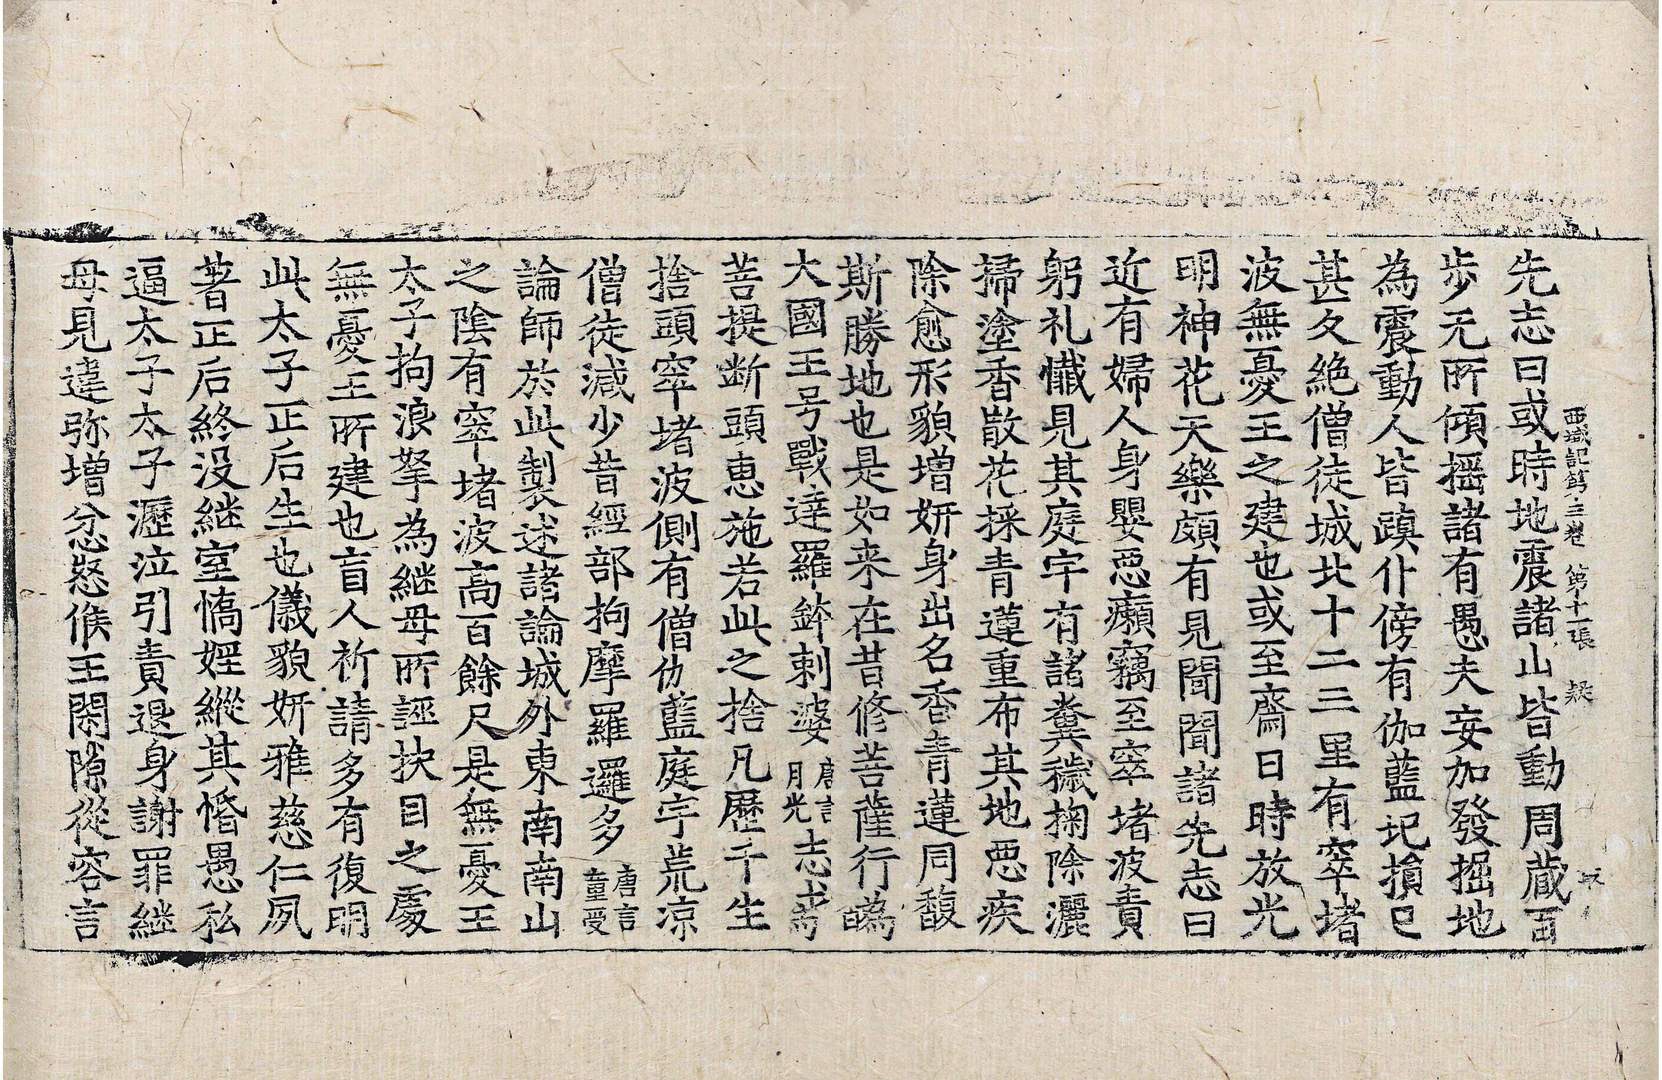 西域記第三卷 第十一張 疑
先志曰或時地震諸山皆動周藏百
步无所傾揺諸有愚夫妄加發掘地
為震動人皆蹎仆傍有伽藍圮損已
甚久絶僧徒城北十二三里有窣堵
波無憂王之建也或至齋日時放光
明神花天樂頗有見聞聞諸先志曰
近有婦人身嬰惡癩竊至窣堵波責
躬礼懺見其庭宇有諸糞穢掬除灑
掃塗香散花採青蓮重布其地惡疾
除愈形貌增妍身出名香青蓮同馥
斯勝地也是如来在昔修菩薩行為
大國王号戰達羅鉢剌婆唐言月光志求
菩提断頭恵施若此之捨凡歷千生
捨頭窣堵波側有僧伽藍庭宇荒凉
僧徒減少昔經部拘摩羅邏多唐言童受
論師於此製述諸論城外東南南山
之陰有窣堵波高百餘尺是無憂王
太子拘浪拏為継母所誣抉目之處
無憂王所建也盲人祈請多有復明
此太子正后生也儀貌妍雅慈仁夙
著正后終没継室憍婬縱其惛愚私
逼太子太子瀝泣引責退身謝罪継
母見違弥增忿怒候王閑隙從容言